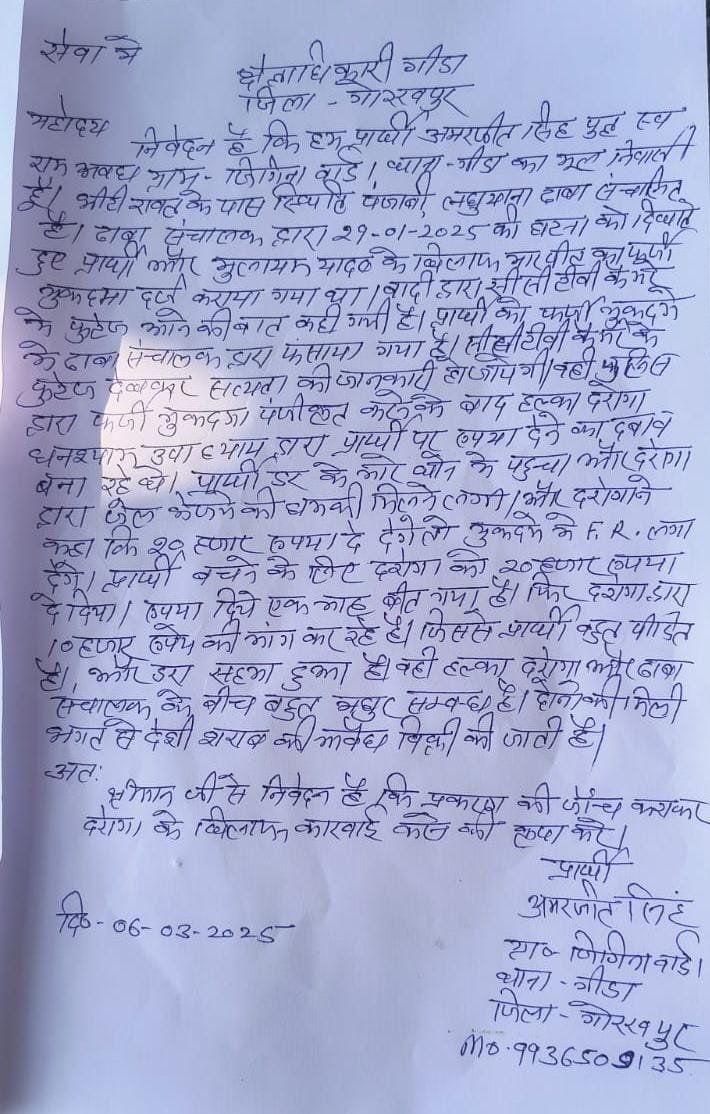 सेवा में
क्षेत्राधिकारी गीडा
जिला - गोरखपुर
महोदय
निवेदन है कि हम प्रार्थी अमरजीत सिंह पुत्र स्व
राम अवध ग्राम - जिगिना वार्ड। थाना - गीडा का मूल निवासी
है। भीटी रावत के पास स्थिति पंजाबी लधुयाना ढाबा संचालित
है। ढाबा संचालक द्वारा 29-01-2025 की घटना को दिखाते
हुए प्रार्थी और मुलायम यादव के खिलाफ मारपीट का फर्जी
मुकदमा दर्ज कराया गया था। वादी द्वारा सीसीटीवी कैमरे
के फुटेज आने की बात कही गयी है। प्रार्थी को फर्जी मुकदमे
मे ढाबा संचालक द्वारा फंसाया गया है। सीसीटीवी कैमरे के
फुटेज देखकर सत्यता की जानकारी हो जायेगी। वही पुलिस
द्वारा फर्जी मुकदमा पंजीकृत करने के बाद हल्का दरोगा
धनश्याम उपाध्याय द्वारा प्रार्थी पर रुपया देने का दबाव
बना रहे थे। प्रार्थी डर के मारे थाने के पहुचा और दरोगा
द्वारा जेल भेजने की धमकी मिलने लगी। और दरोगा ने
कहा कि 20 हजार रुपया दे देंगे तो मुकदमे मे F.R. लगा
देंगे। प्रार्थी बचने के लिए दरोगा को 20 हजार रुपया
दे दिया। रुपया दिये एक माह बीत गया है। फिर दरोगा द्वारा
10 हजार रुपये की मांग कर रहे है। जिससे प्रार्थी बहुत पीडित
है। और डरा सहमा हुआ है। वही हल्का दरोगा और ढाबा
संचालक के बीच बहुत मधुर सम्बन्ध है। दोनो की मिली
भगत से देशी शराब की अवैध बिक्री की जाती है।
अतः
श्रीमान जी से निवेदन है कि प्रकरण की जाँच कराकर
दरोगा के खिलाफ कारवाई करने की कृपा करे।
प्रार्थी
अमरजीत सिंह
सा० जिगिना वार्ड।
थाना - गीडा
जिला - गोरखपुर
दि०- 06-03-2025
Mo. 9936509135